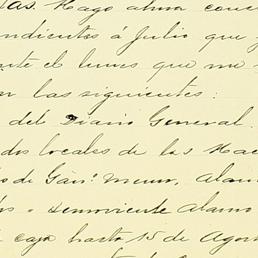 tas. Hago ahora conc
ndientes á Julio que
nte el lunes que me
n las siguientes:
del Diario General.
dos locales de las Hac
o de Gas.º menor, Alam
o semoviente Alamo
caja hasta 15 de Agost